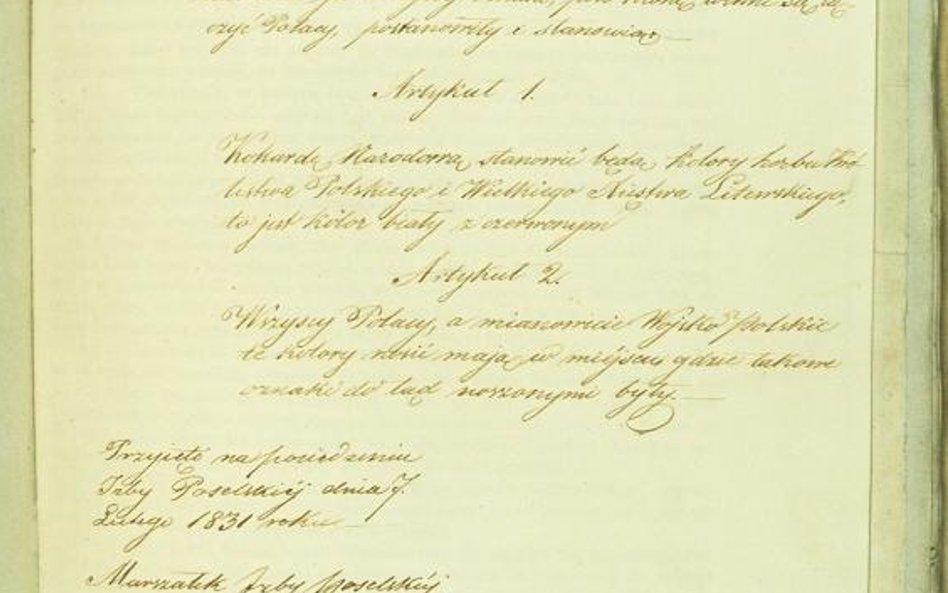 czyć Polacy, postanowiły i stanowią
Artykuł 1.
Kokardę Narodową stanowić będą kolory herbu Kró
lestwa Polskiego i Wielkiego Xięstwa Litewskiego,
to jest kolor biały z czerwonym
Artykuł 2.
Wszyscy Polacy, a mianowicie Wojsko polskie
te kolory nosić mają w miejscu gdzie takowe
oznaki do tąd noszonymi były.
Przyjęto na posiedzeniu
Izby Poselskiéj dnia 7.
Lutego 1831 roku
Marszałek Izby poselskiéj